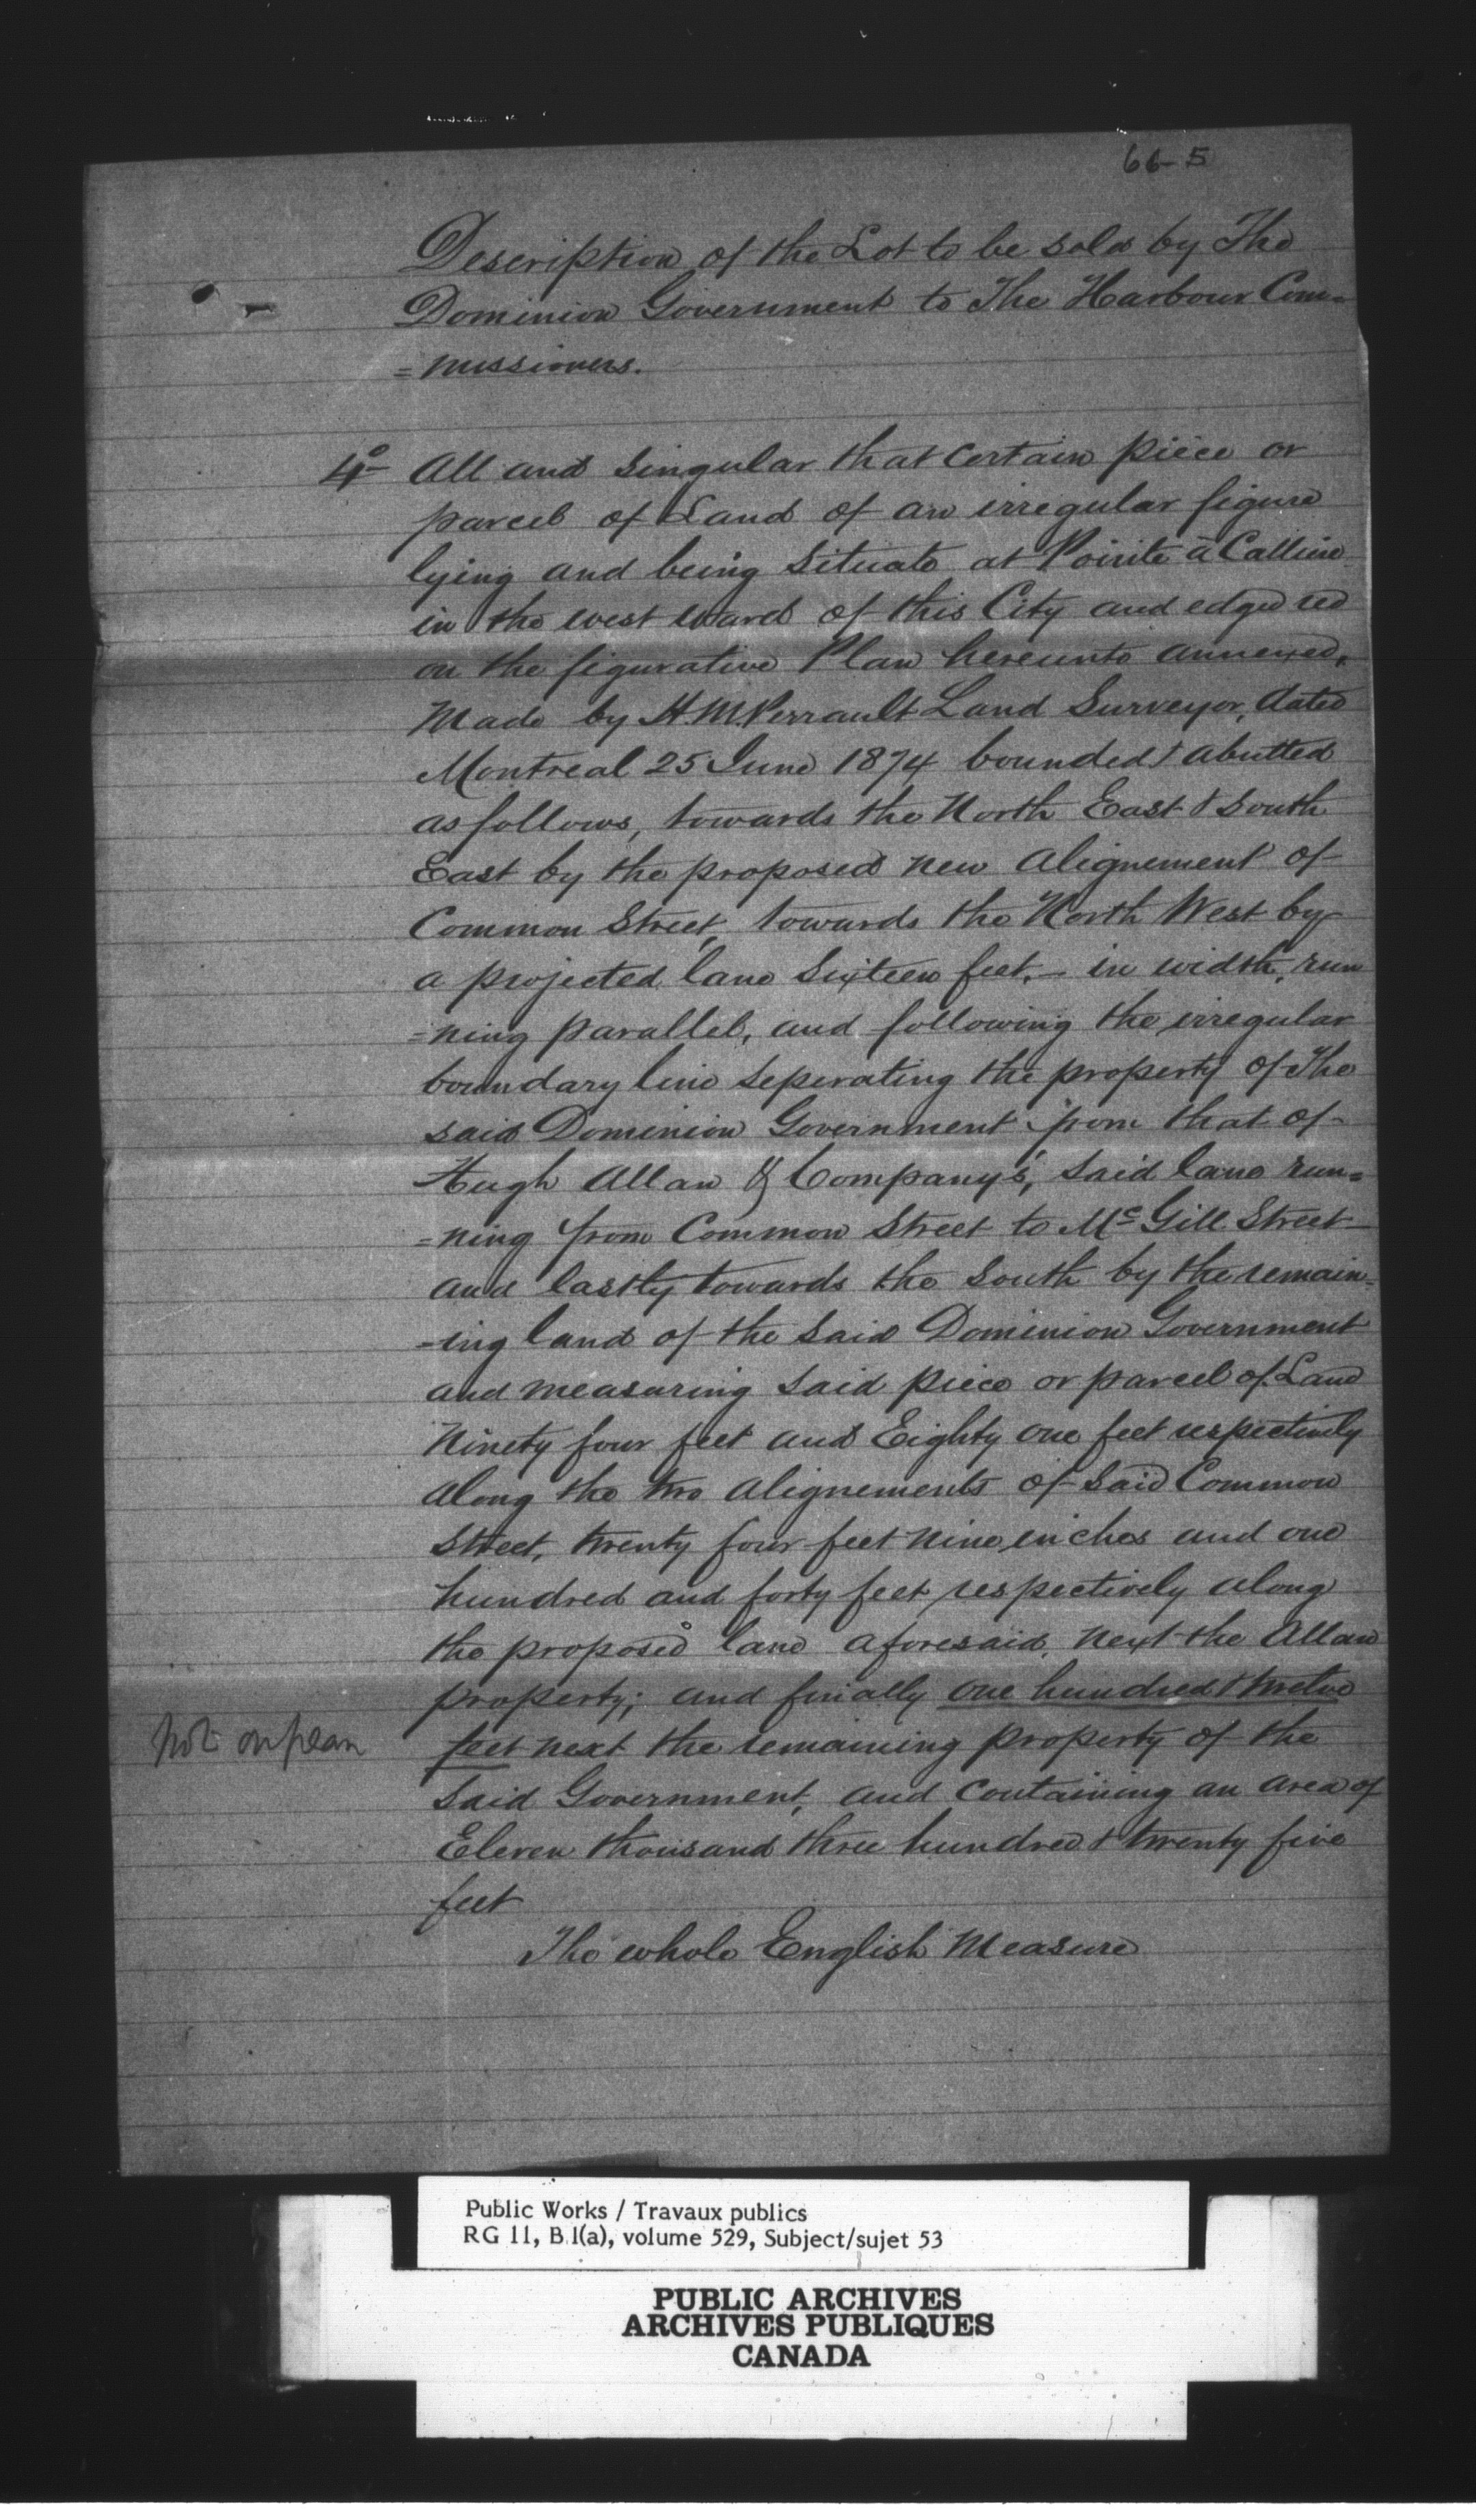 66-5
Description of the Lot to be sold by The
Dominion Government to The Harbour Com=
=missioners.
4º All and singular that certain piece or
parcel of Land of an irregular figure
lying and being situate at Pointe à Calline
in the west ward of this City and edged red
on the figurative Plan hereunto annexed,
Made by H. M. Perrault Land Surveyor, dated
Montreal 25 June 1874 bounded & abutted
as follows, towards the North East & South
East by the proposed new Alignement of
Common Street, towards the North West by
a projected lane sixteen feet, - in width, run
=ning parallel, and following the irregular
boundary line seperating the property of The
said Dominion Government from that of
Hugh Allan & Company's, said lane run=
=ning from Common Street to Mc Gill Street
and lastly towards the South by the remain=
=ing land of the said Dominion Government
and measuring said piece or parcel of Land
Ninety four feet and Eighty one feet respectively
along the two Alignements of said Common
Street, twenty four feet nine inches and one
hundred and forty feet respectively along
the proposed lane aforesaid, next the Allan
property; and finally one hundred & twelve
not on plan feet next the remaining property of the
said Government, and containing an area of
Eleven thousand three hundred & twenty five
feet
The whole English Measure
Public Works / Travaux publics
RG 11, B 1(a), volume 529, Subject/sujet 53
PUBLIC ARCHIVES
ARCHIVES PUBLIQUES
CANADA